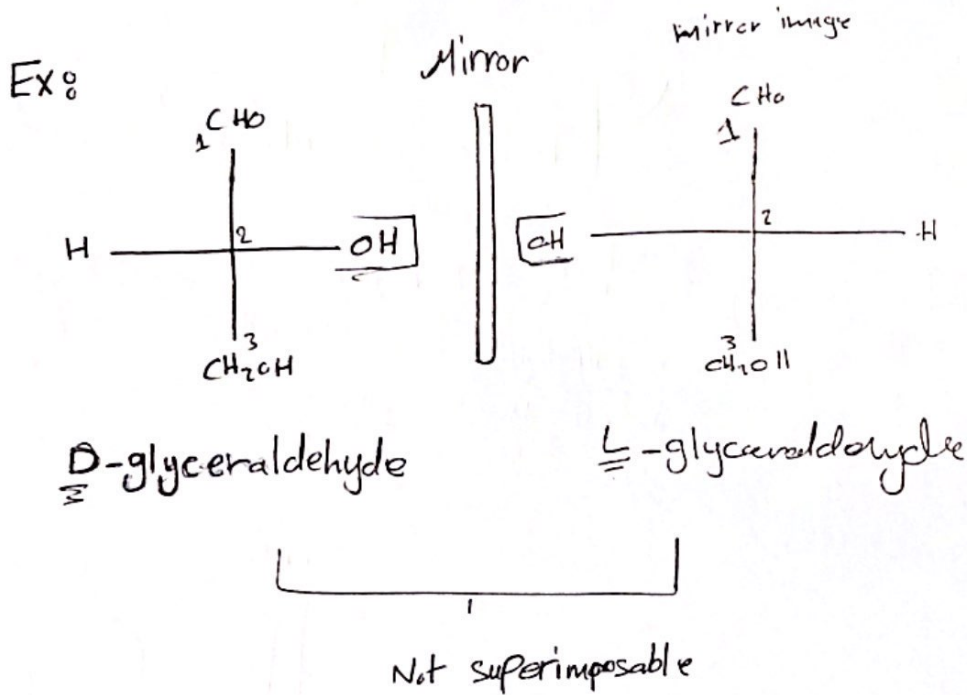 Ex:
Mirror
mirror image
CHO
CHO
1
1
2
2
H
OH
OH
H
3
3
CH2OH
CH2OH
D-glyceraldehyde
L-glyceraldehyde
Not superimposable